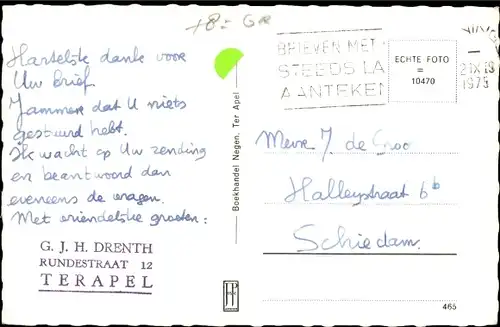 +8 = GR
Hartelste danke voor
Uw brief.
Jammer dat U niets
gestuurd hebt.
Ik wacht op Uw zending
en beantwoord dan
eveneens de vragen.
Met vriendelske groeten:
G. J. H. DRENTH
RUNDESTRAAT 12
TERAPEL
Boekhandel Negen, Ter Apel
BRIEVEN MET
STEEDS LA
AANTEKEN
ECHTE FOTO
=
10470
21 IX 19
1973
Mevr J. de Groo
Halleystraat 6b
Schiedam.
465